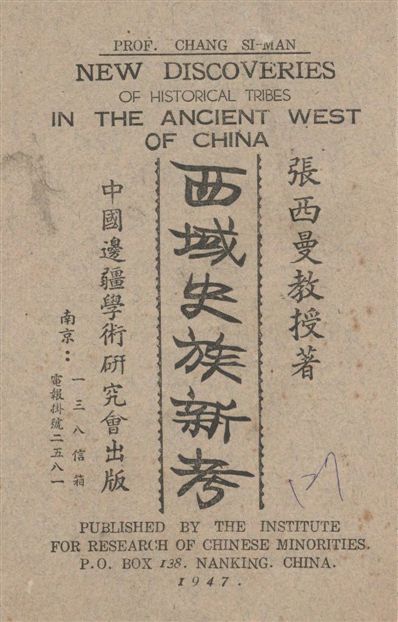 PROF. CHANG SI-MAN
NEW DISCOVERIES
OF HISTORICAL TRIBES
IN THE ANCIENT WEST
OF CHINA
張西曼教授著
西域史族新考
中國邊疆學術研究會出版
南京：
一三八信箱
電報掛號二五八一
PUBLISHED BY THE INSTITUTE
FOR RESEARCH OF CHINESE MINORITIES.
P.O. BOX 138. NANKING. CHINA.
1947.